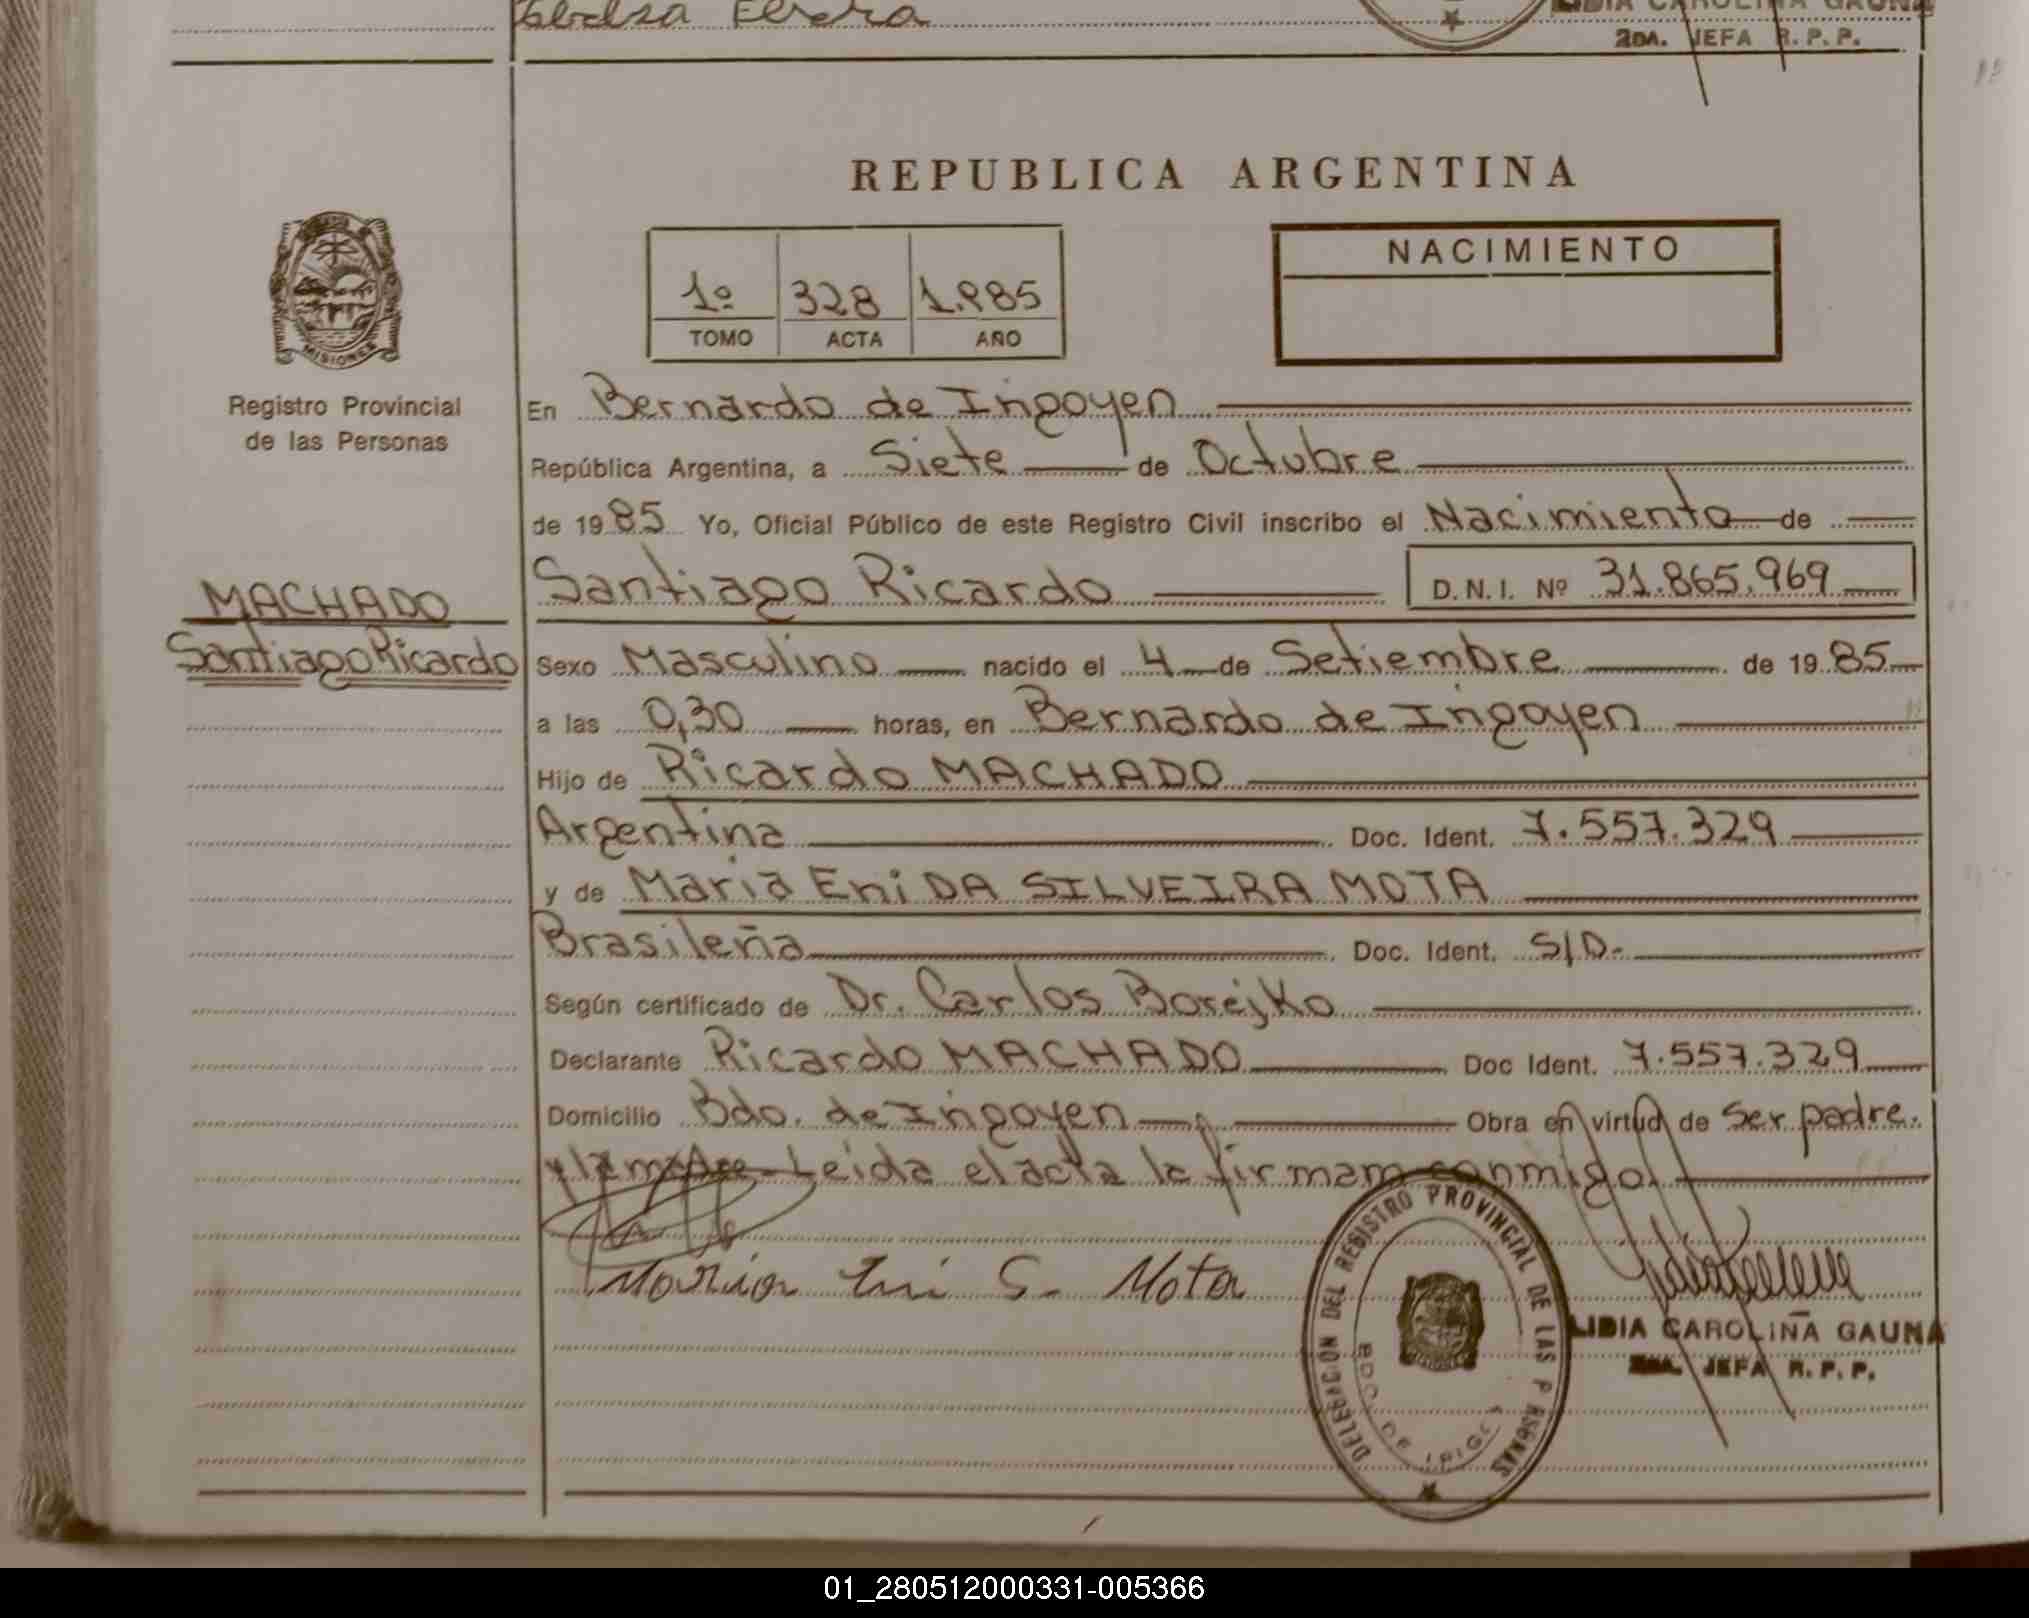 Elvira
LIDIA CAROLINA GAUNA
2DA. JEFA R.P.P.
REPUBLICA ARGENTINA
NACIMIENTO
1º 328 1.985
TOMO ACTA AÑO
MISIONES
Registro Provincial
de las Personas
En Bernardo de Irigoyen
República Argentina, a Siete de Octubre
de 1985 Yo, Oficial Público de este Registro Civil inscribo el Nacimiento de
MACHADO
Santiago Ricardo
Santiago Ricardo D.N.I. Nº 31.865.969
Sexo Masculino nacido el 4 de Setiembre de 1985
a las 0,30 horas, en Bernardo de Irigoyen
Hijo de Ricardo MACHADO
Argentina Doc. Ident. 7.557.329
y de Maria Eni DA SILVEIRA MOTA
Brasileña Doc. Ident. S/D.
Según certificado de Dr. Carlos Borejko
Declarante Ricardo MACHADO Doc Ident. 7.557.329
Domicilio Bdo. de Irigoyen Obra en virtud de Ser padre.
y la madre - Leída el acta la firman conmigo.
Maria Eni S. Mota
DELEGACION DEL REGISTRO PROVINCIAL DE LAS P RSONAS
BDO. DE IRIGOY
LIDIA CAROLINA GAUNA
2DA. JEFA R.P.P.
01_280512000331-005366